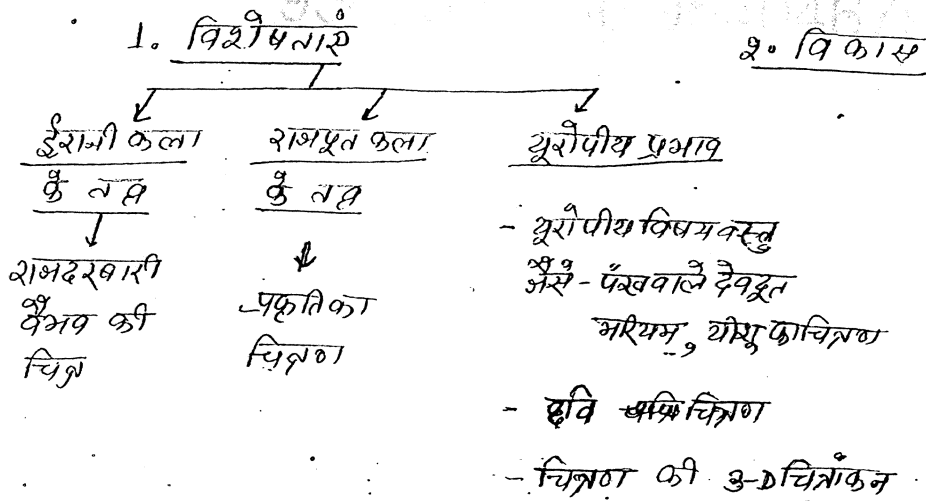 1. विशेषताएं
2. विकास
ईरानी कला
के तत्व
राजदरबारी
वैभव की
चित्र
राजपूत कला
के तत्व
प्रकृति का
चित्रण
यूरोपीय प्रभाव
- यूरोपीय विषय वस्तु
जैसे - पंखवाले देवदूत
मरियम, यीशू का चित्रण
- छवि चित्रण
- चित्रण की 3-D चित्रांकन